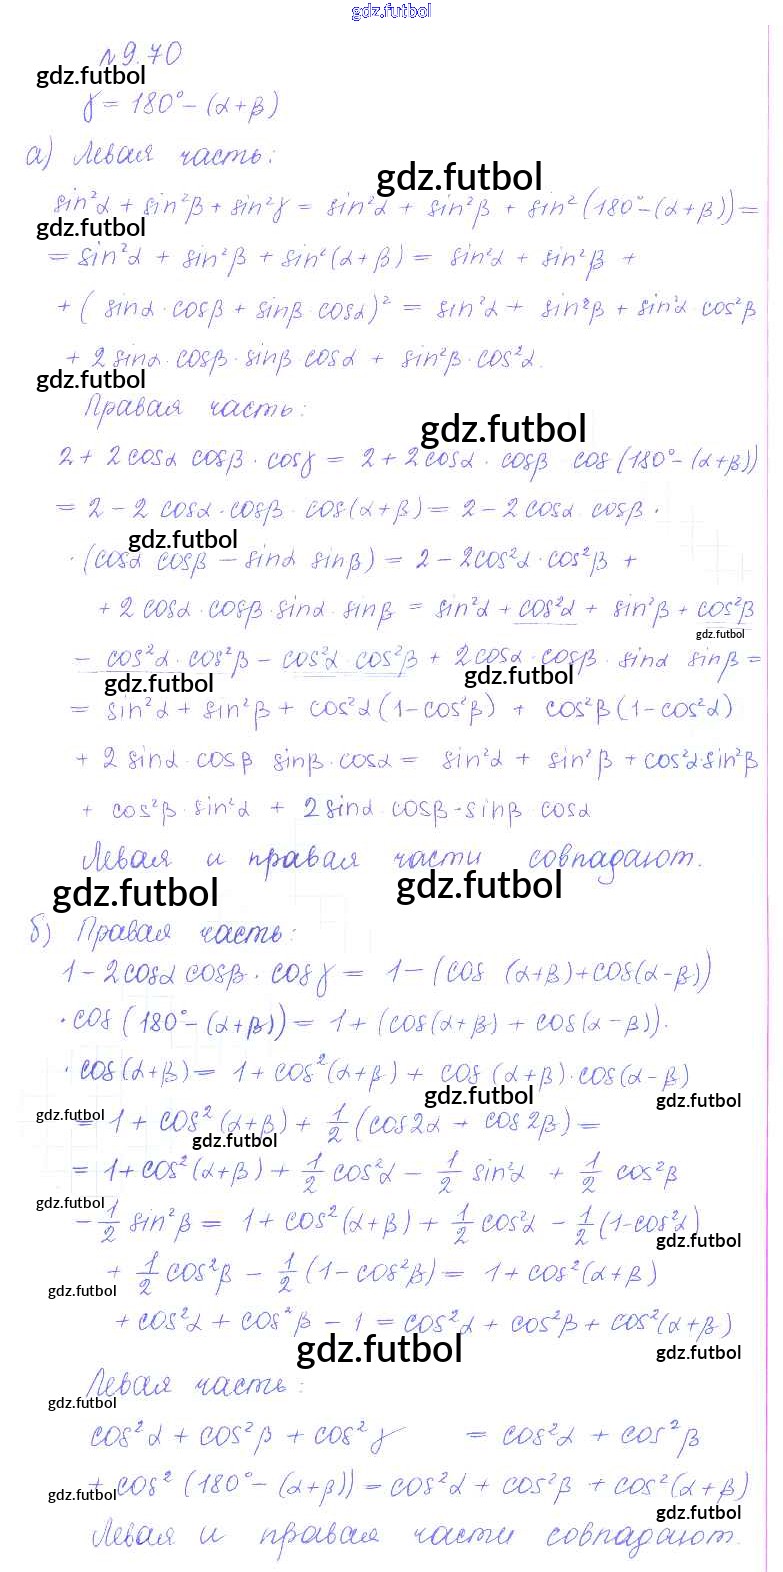 gdz.futbol
№9.70
gdz.futbol
γ = 180° - (α+β)
а) Левая часть:
gdz.futbol
sin²α + sin²β + sin²γ = sin²α + sin²β + sin²(180° - (α+β)) =
gdz.futbol
= sin²α + sin²β + sin²(α+β) = sin²α + sin²β +
+ (sinα · cosβ + sinβ cosα)² = sin²α + sin²β + sin²α · cos²β
+ 2 sinα · cosβ · sinβ cosα + sin²β · cos²α.
gdz.futbol
Правая часть:
gdz.futbol
2 + 2cosα cosβ · cosγ = 2 + 2cosα · cosβ cos(180° - (α+β))
= 2 - 2 cosα · cosβ · cos(α+β) = 2 - 2cosα cosβ ·
gdz.futbol
· (cosα cosβ - sinα sinβ) = 2 - 2cos²α · cos²β +
+ 2 cosα · cosβ · sinα · sinβ = sin²α + cos²α + sin²β + cos²β
gdz.futbol
- cos²α · cos²β - cos²α · cos²β + 2cosα · cosβ · sinα sinβ =
gdz.futbol gdz.futbol
= sin²α + sin²β + cos²α(1-cos²β) + cos²β(1-cos²α)
+ 2 sinα · cosβ sinβ · cosα = sin²α + sin²β + cos²α·sin²β
+ cos²β · sin²α + 2sinα · cosβ · sinβ cosα
Левая и правая части совпадают.
gdz.futbol gdz.futbol
б) Правая часть:
1 - 2cosα cosβ · cosγ = 1 - (cos (α+β) + cos(α-β))
· cos(180° - (α+β)) = 1 + (cos(α+β) + cos(α-β)) ·
· cos(α+β) = 1 + cos²(α+β) + cos (α+β) · cos(α-β)
gdz.futbol gdz.futbol
gdz.futbol
= 1 + cos²(α+β) + 1/2 (cos2α + cos2β) =
gdz.futbol
= 1 + cos²(α+β) + 1/2 cos²α - 1/2 sin²α + 1/2 cos²β
gdz.futbol
- 1/2 sin²β = 1 + cos²(α+β) + 1/2 cos²α - 1/2 (1-cos²α)
gdz.futbol
+ 1/2 cos²β - 1/2 (1 - cos²β) = 1 + cos²(α+β)
gdz.futbol
+ cos²α + cos²β - 1 = cos²α + cos²β + cos²(α+β)
gdz.futbol gdz.futbol
Левая часть:
gdz.futbol
cos²α + cos²β + cos²γ = cos²α + cos²β
+ cos² (180° - (α+β)) = cos²α + cos²β + cos²(α+β)
gdz.futbol
gdz.futbol
Левая и правая части совпадают.